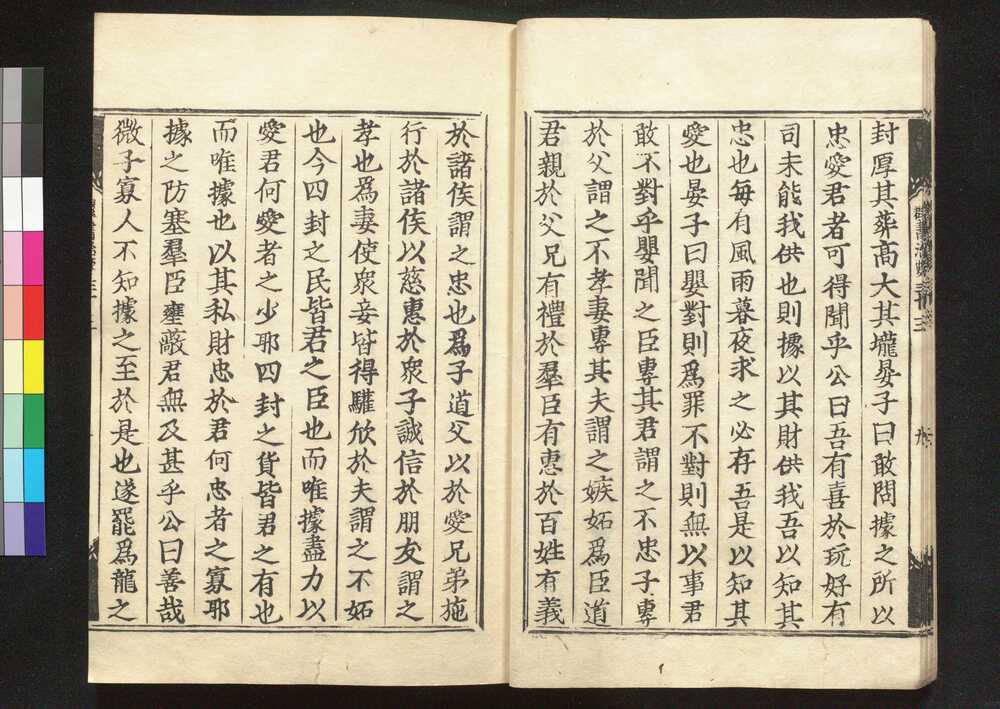 封厚其葬高大其壠晏子曰敢問據之所以
忠愛君者可得聞乎公曰吾有喜於玩好有
司未能我供也則據以其財供我吾以知其
忠也每有風雨暮夜求之必存吾是以知其
愛也晏子曰嬰對則爲罪不對則無以事君
敢不對乎嬰聞之臣專其君謂之不忠子專
於父謂之不孝妻專其夫謂之嫉妬爲臣道
君親於父兄有禮於羣臣有惠於百姓有義
於諸侯謂之忠也爲子道父以於愛兄弟施
行於諸侯以慈惠於衆子誠信於朋友謂之
孝也爲妻使衆妾皆得驩欣於夫謂之不妬
也今四封之民皆君之臣也而唯據盡力以
愛君何愛者之少耶四封之貨皆君之有也
而唯據也以其私財忠於君何忠者之寡耶
據之防塞羣臣壅蔽君無及甚乎公曰善哉
微子寡人不知據之至於是也遂罷爲龍之